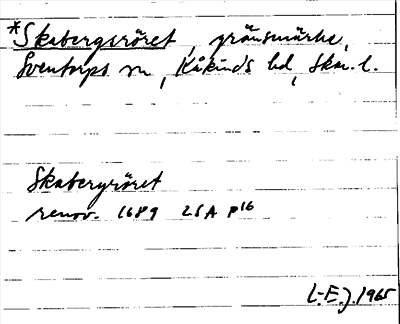 *Skabergsröret, gränsmärke,
Sventorps sn, Kåkinds hd, Skar. l.
Skabergröret
renov. 1689 LSA P16
L-E.J. 1965